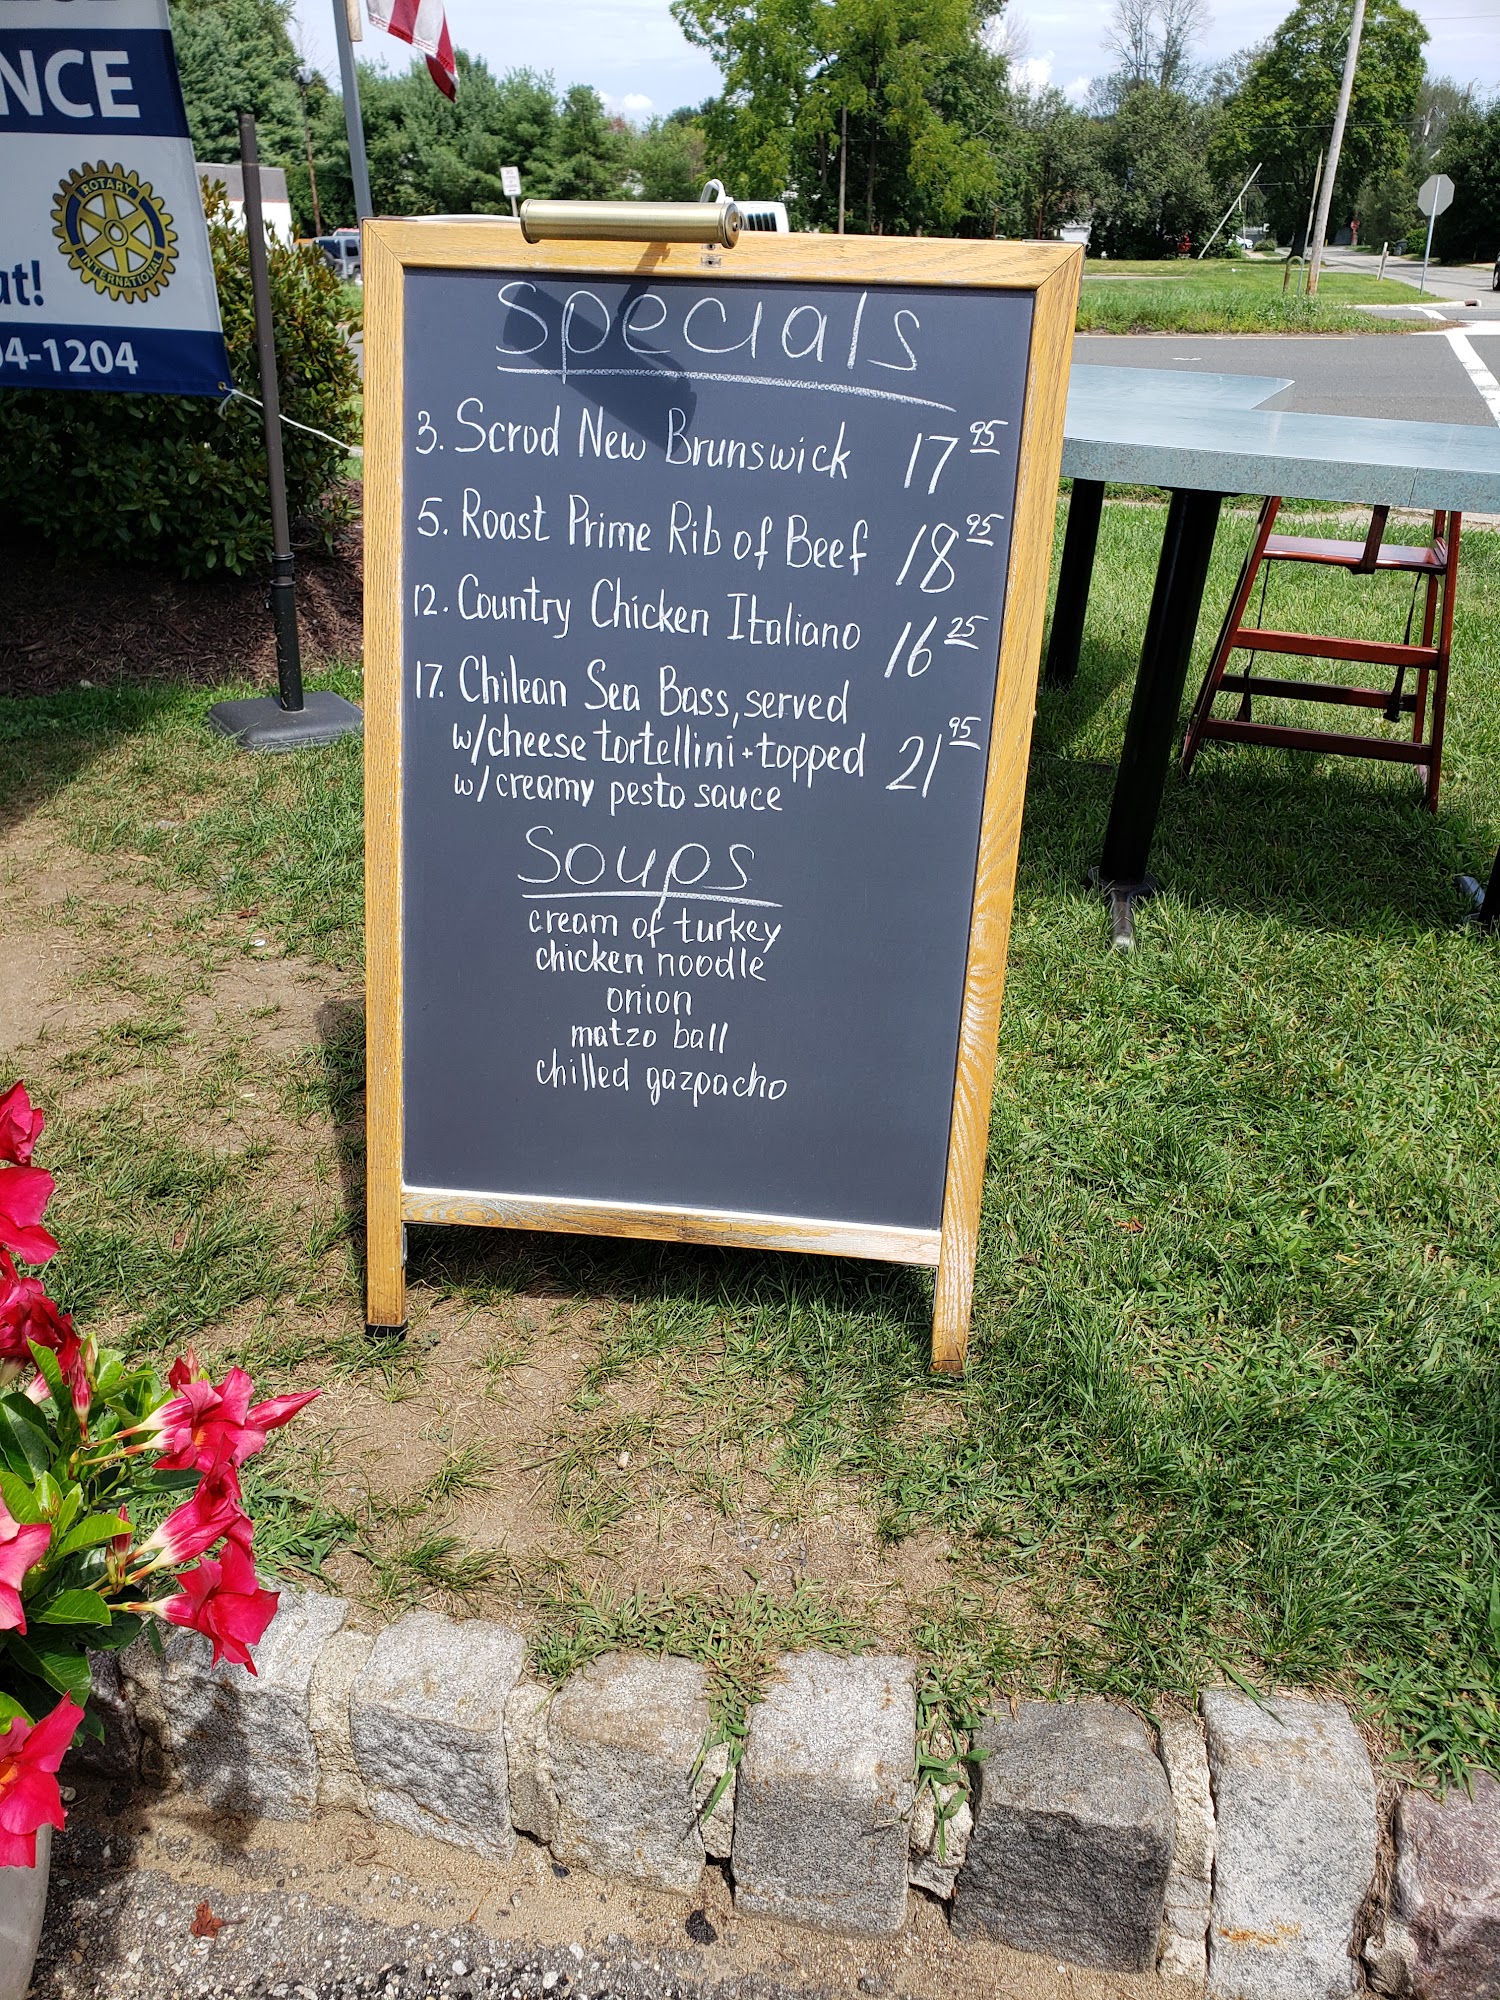 NCE
ROTARY
INTERNATIONAL
at!
04-1204
Specials
3. Scrod New Brunswick 17 95
5. Roast Prime Rib of Beef 18 95
12. Country Chicken Italiano 16 25
17. Chilean Sea Bass, served
w/cheese tortellini + topped 21 95
w/creamy pesto sauce
Soups
cream of turkey
chicken noodle
onion
matzo ball
chilled gazpacho